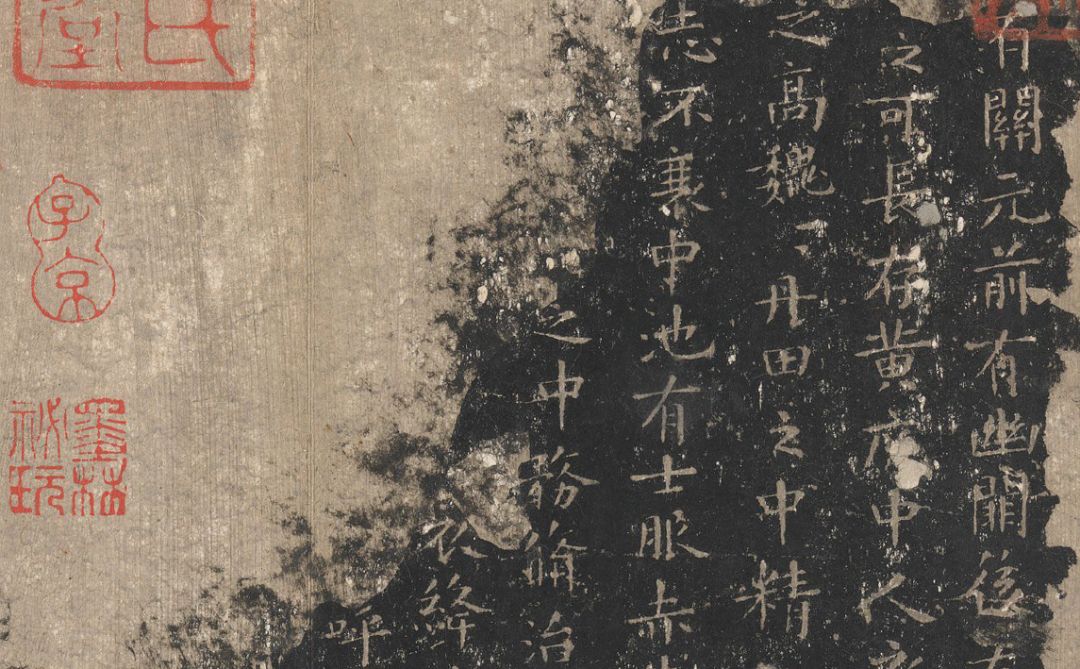 有關元前有幽闕後
之可長存黃庭中人
之高魏〻丹田之中精
志不衰中池有士服赤
之中務脩治
衣絳
呼
氏
堂
子京
墨林
祕玩